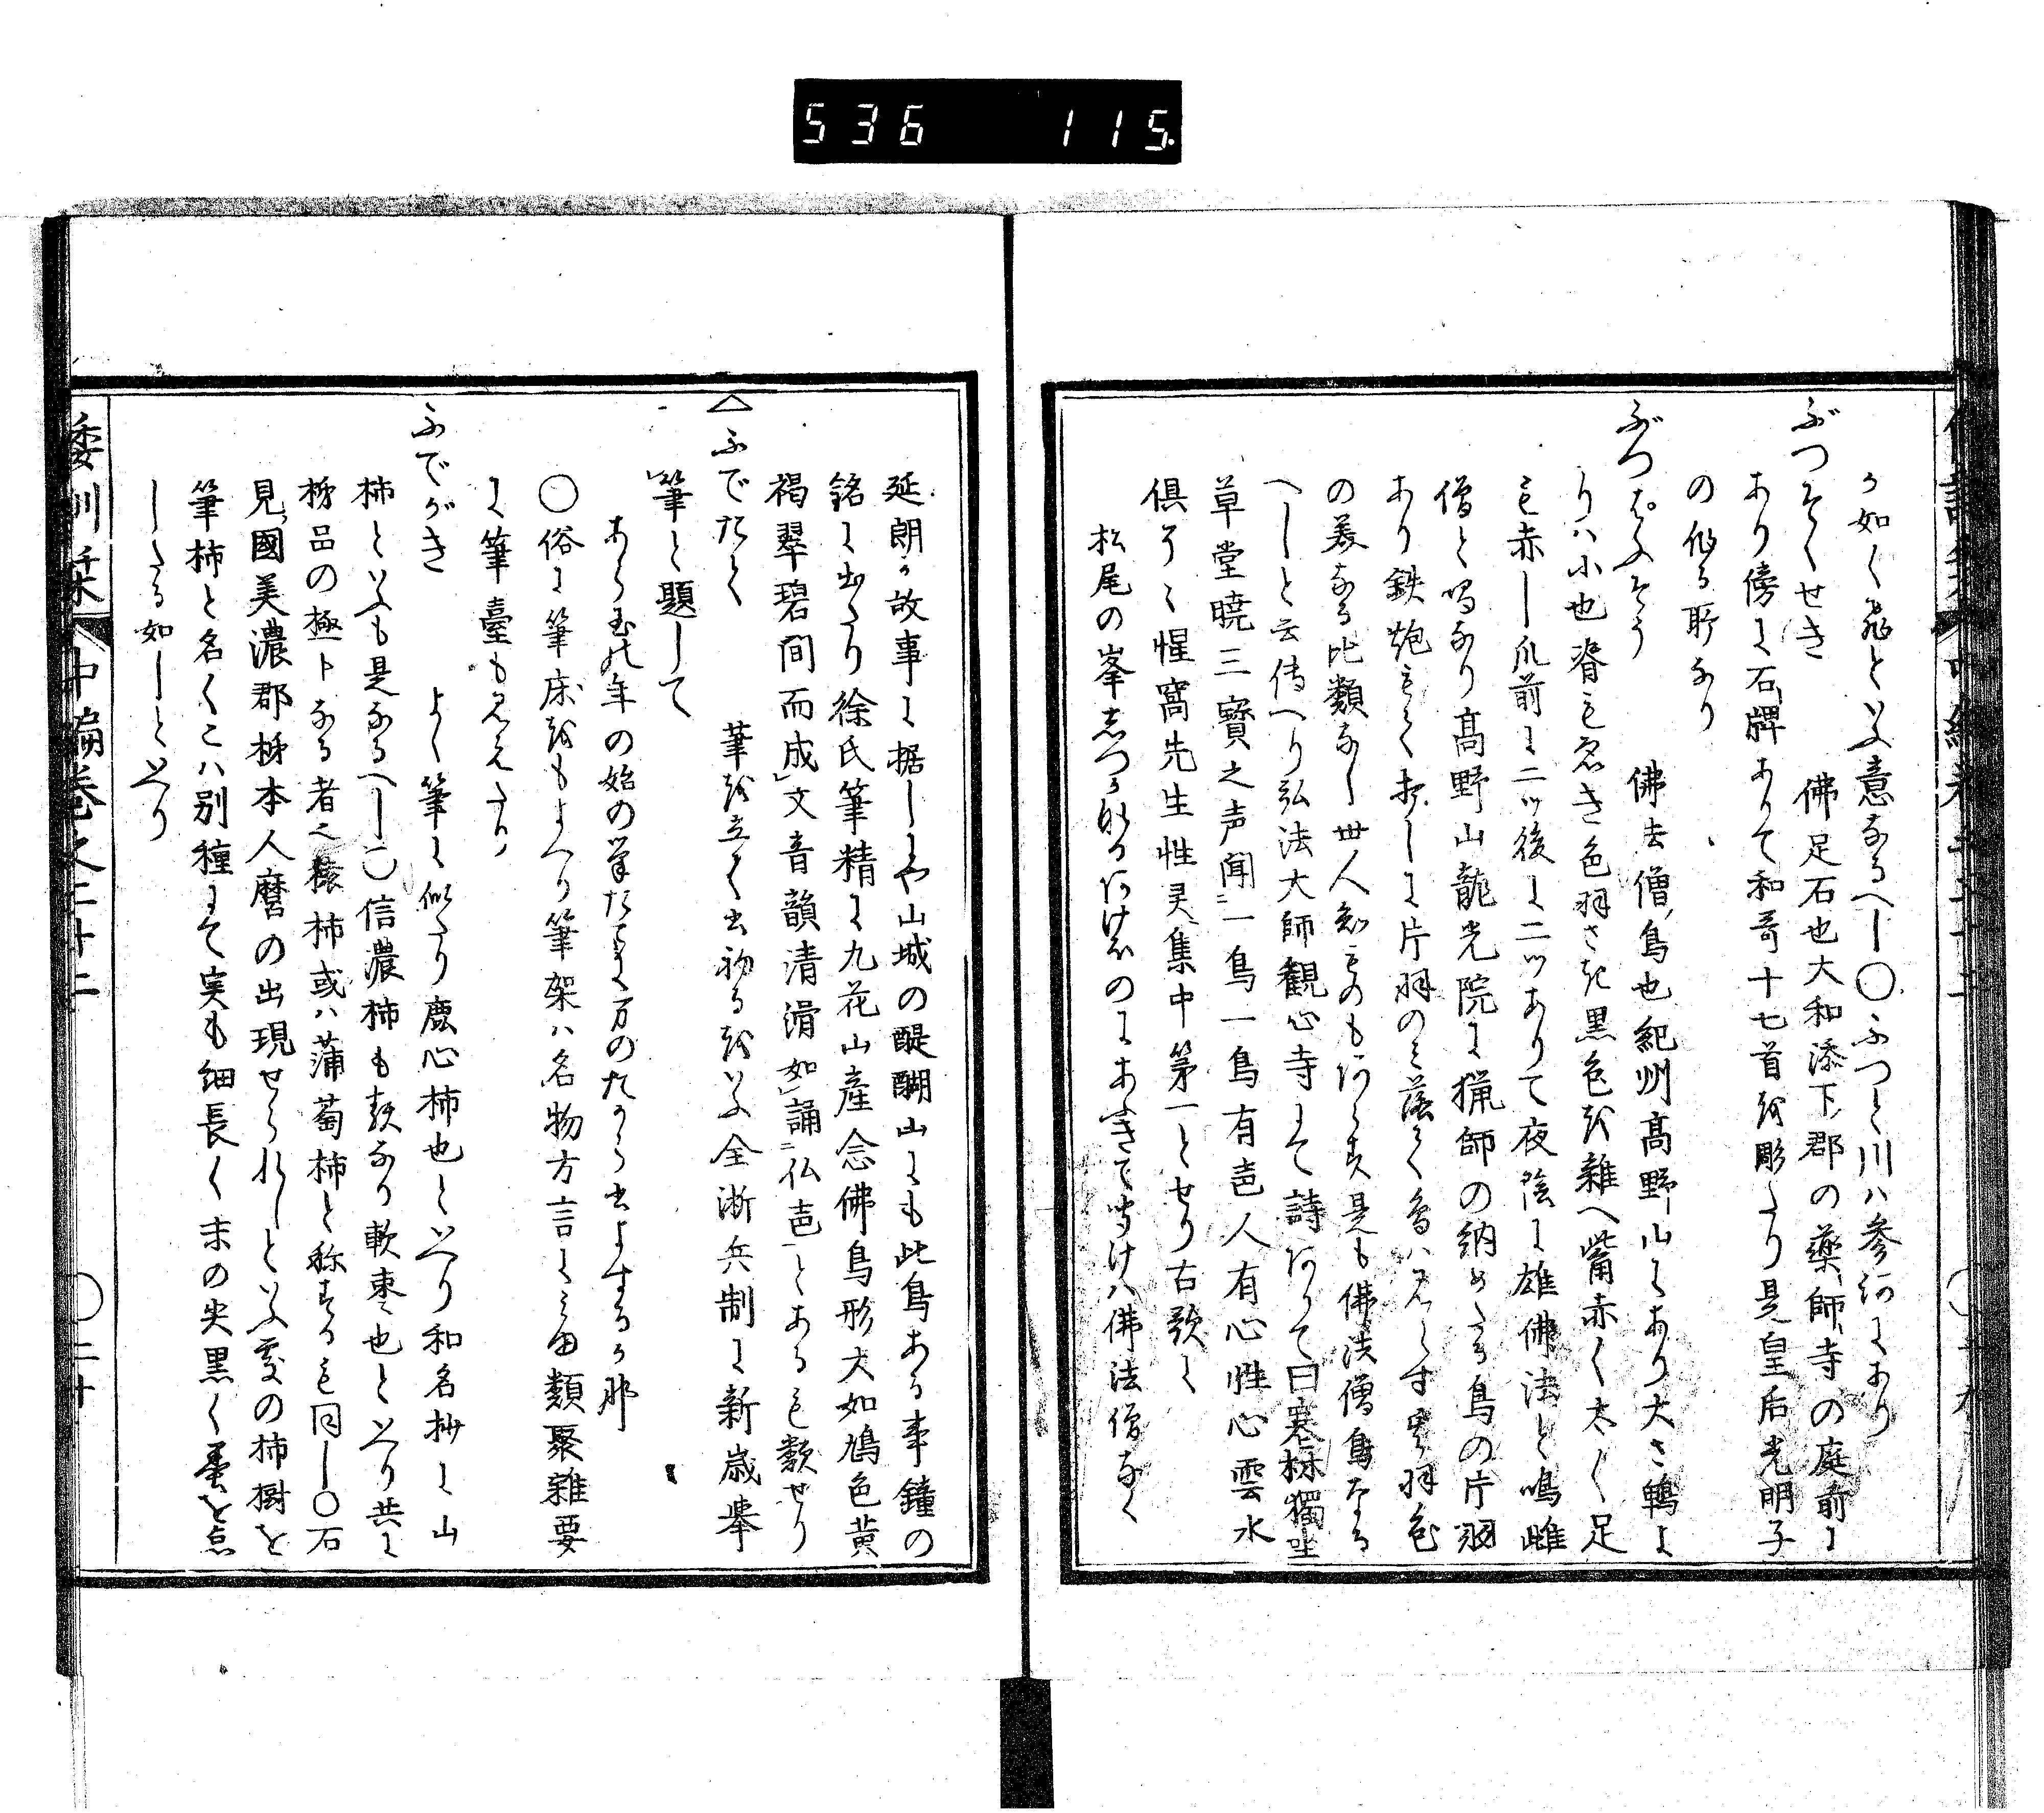 536 115.
か如く飛といふ意なるへし〇ふつく川ハ参河にあり
ぶつそくせき 佛足石也大和添下郡の藥師寺の庭前に
あり傍に石牌ありて和哥十七首を彫たり是皇后光明子
の作る所なり
ぶつぽふそう 佛法僧鳥也紀州髙野山にあり大さ鵯よ
りハ小也脊も忍き色羽さき黒色を雜へ觜赤く太く足
も赤し爪前に二ツ後に二ツありて夜陰に雄佛法と鳴雌
僧と鳴なり髙野山龍光院に猟師の納めたる鳥の片羽
あり鉄炮もて打しに片羽のミ落て鳥ハ
の美なる比類なし世人知ものもあらす是も佛法僧鳥なる
へしと云傳へり弘法大師観心寺にて詩ありて曰寒林獨坐
草堂暁三寳之声聞ニ一鳥一鳥有声人有心性心雲水
倶了々惺窩先生性灵集中第一とせり古歌に
松尾の峯しつかなるあけほのにあふきて聞けハ佛法僧なく
延朗か故事に据しにや山城の醍醐山にも此鳥ある事鐘の
銘に出たり徐氏筆精に九花山産念佛鳥形大如鳩色黄
褐翠碧間而成文音韻清滑如誦ニ仏声とあるも類せり
△ふでたて 筆を立て書初るをいふ全淅兵制に新歳擧
筆と題して
あら玉の年の始の筆たてに万のたから書よするか那
〇俗に筆床をもよへり筆架ハ名物方言にミゆ類聚雜要
に筆臺も見えたり
ふでがき よく筆に似たり鹿心柿也といへり和名抄に山
柿といふも是なるへし〇信濃柿も類なり軟棗也といへり共に
柹品の極下なる者也猿柿或ハ蒲萄柿と称するも同し〇石
見國美濃郡柹本人麿の出現せられしといふ家の柿樹を
筆柿と名くこハ別種にて実も細長く末の尖黒く墨を点
したる如しといへり
倭訓栞 中編巻之二十二 〇二十